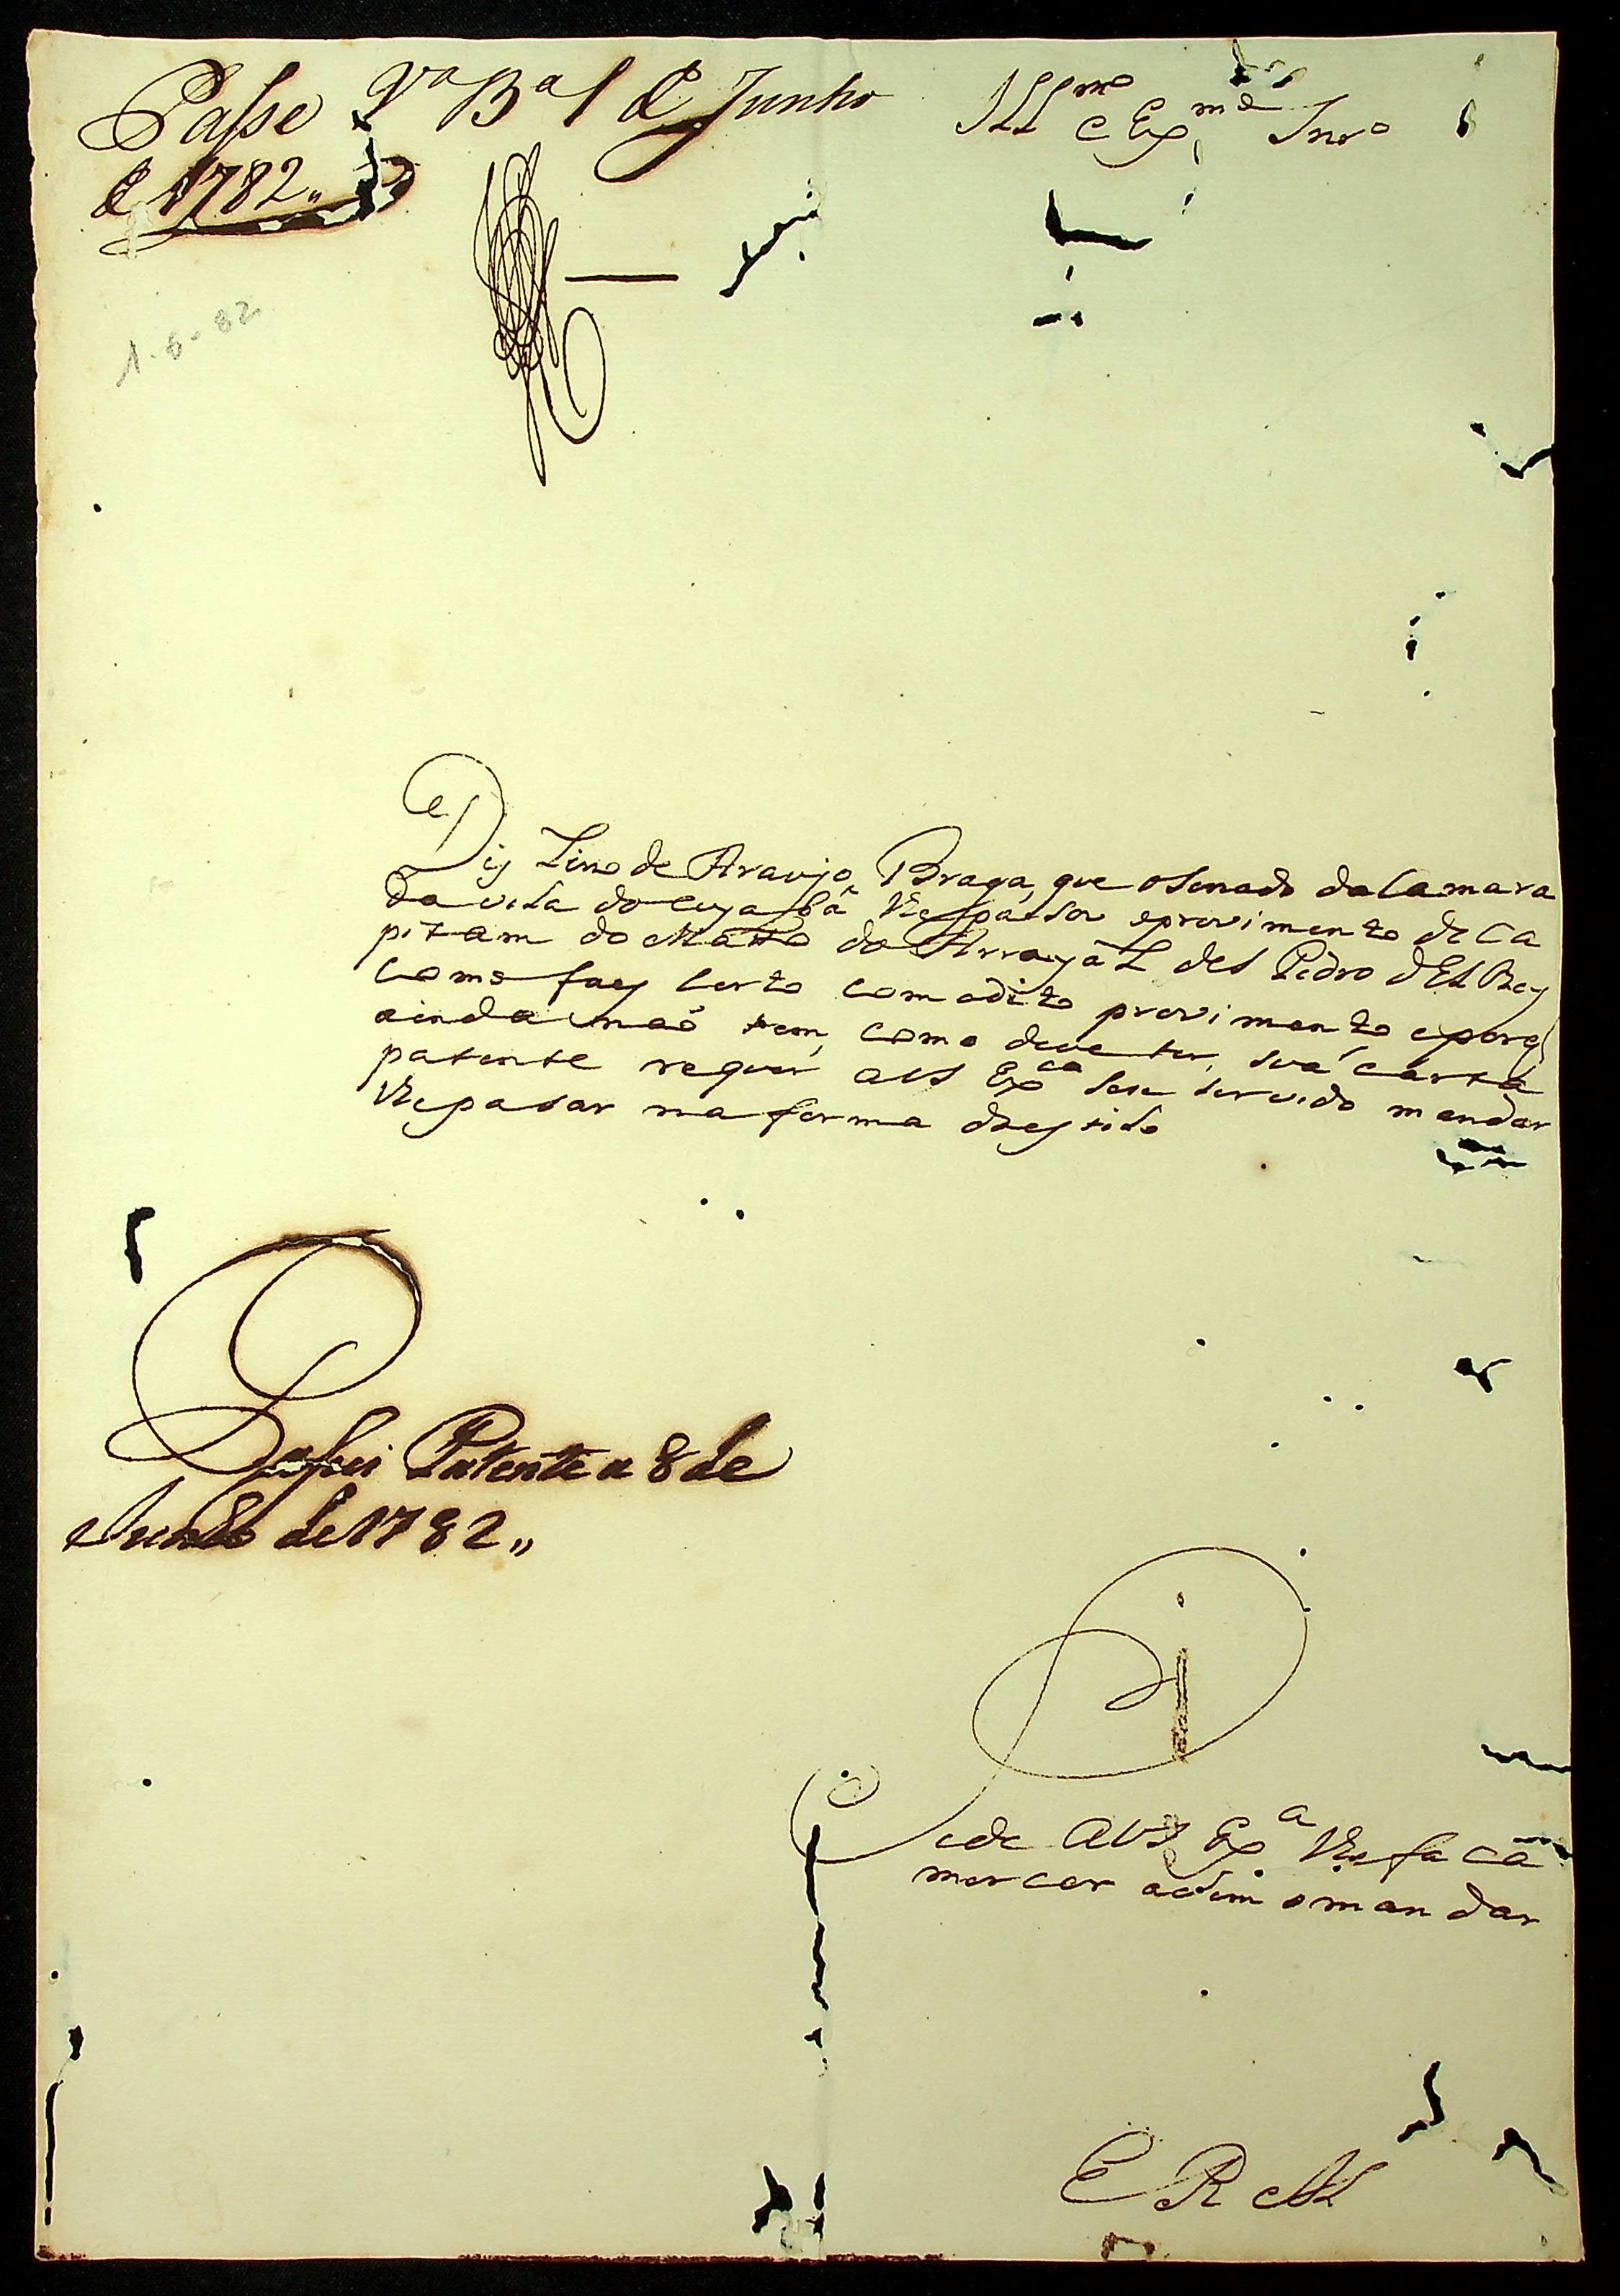 Passe V.ª B.ª 1 de Junho
de 1782„
Ill.mo e Ex.mo Snro
1-6-82
Diz Lino de Araujo Braga, que oSenado daCamara
da vila doCuyabâ lhepassou oprovimento deCa
pitam do Matto do Arrayal deS Pedro dElRey
Como faz Certo Com odito provimento eporq
ainda naõ tem, como deve ter, sua carta
patente requer aVS Ex.ca Seia Servido mandar
lhepasar na forma do estilo
Passei Patente a 8 de
Junho de 1782„
Pede AVS Ex.a lhe faca
mercer asim omandar
E R M